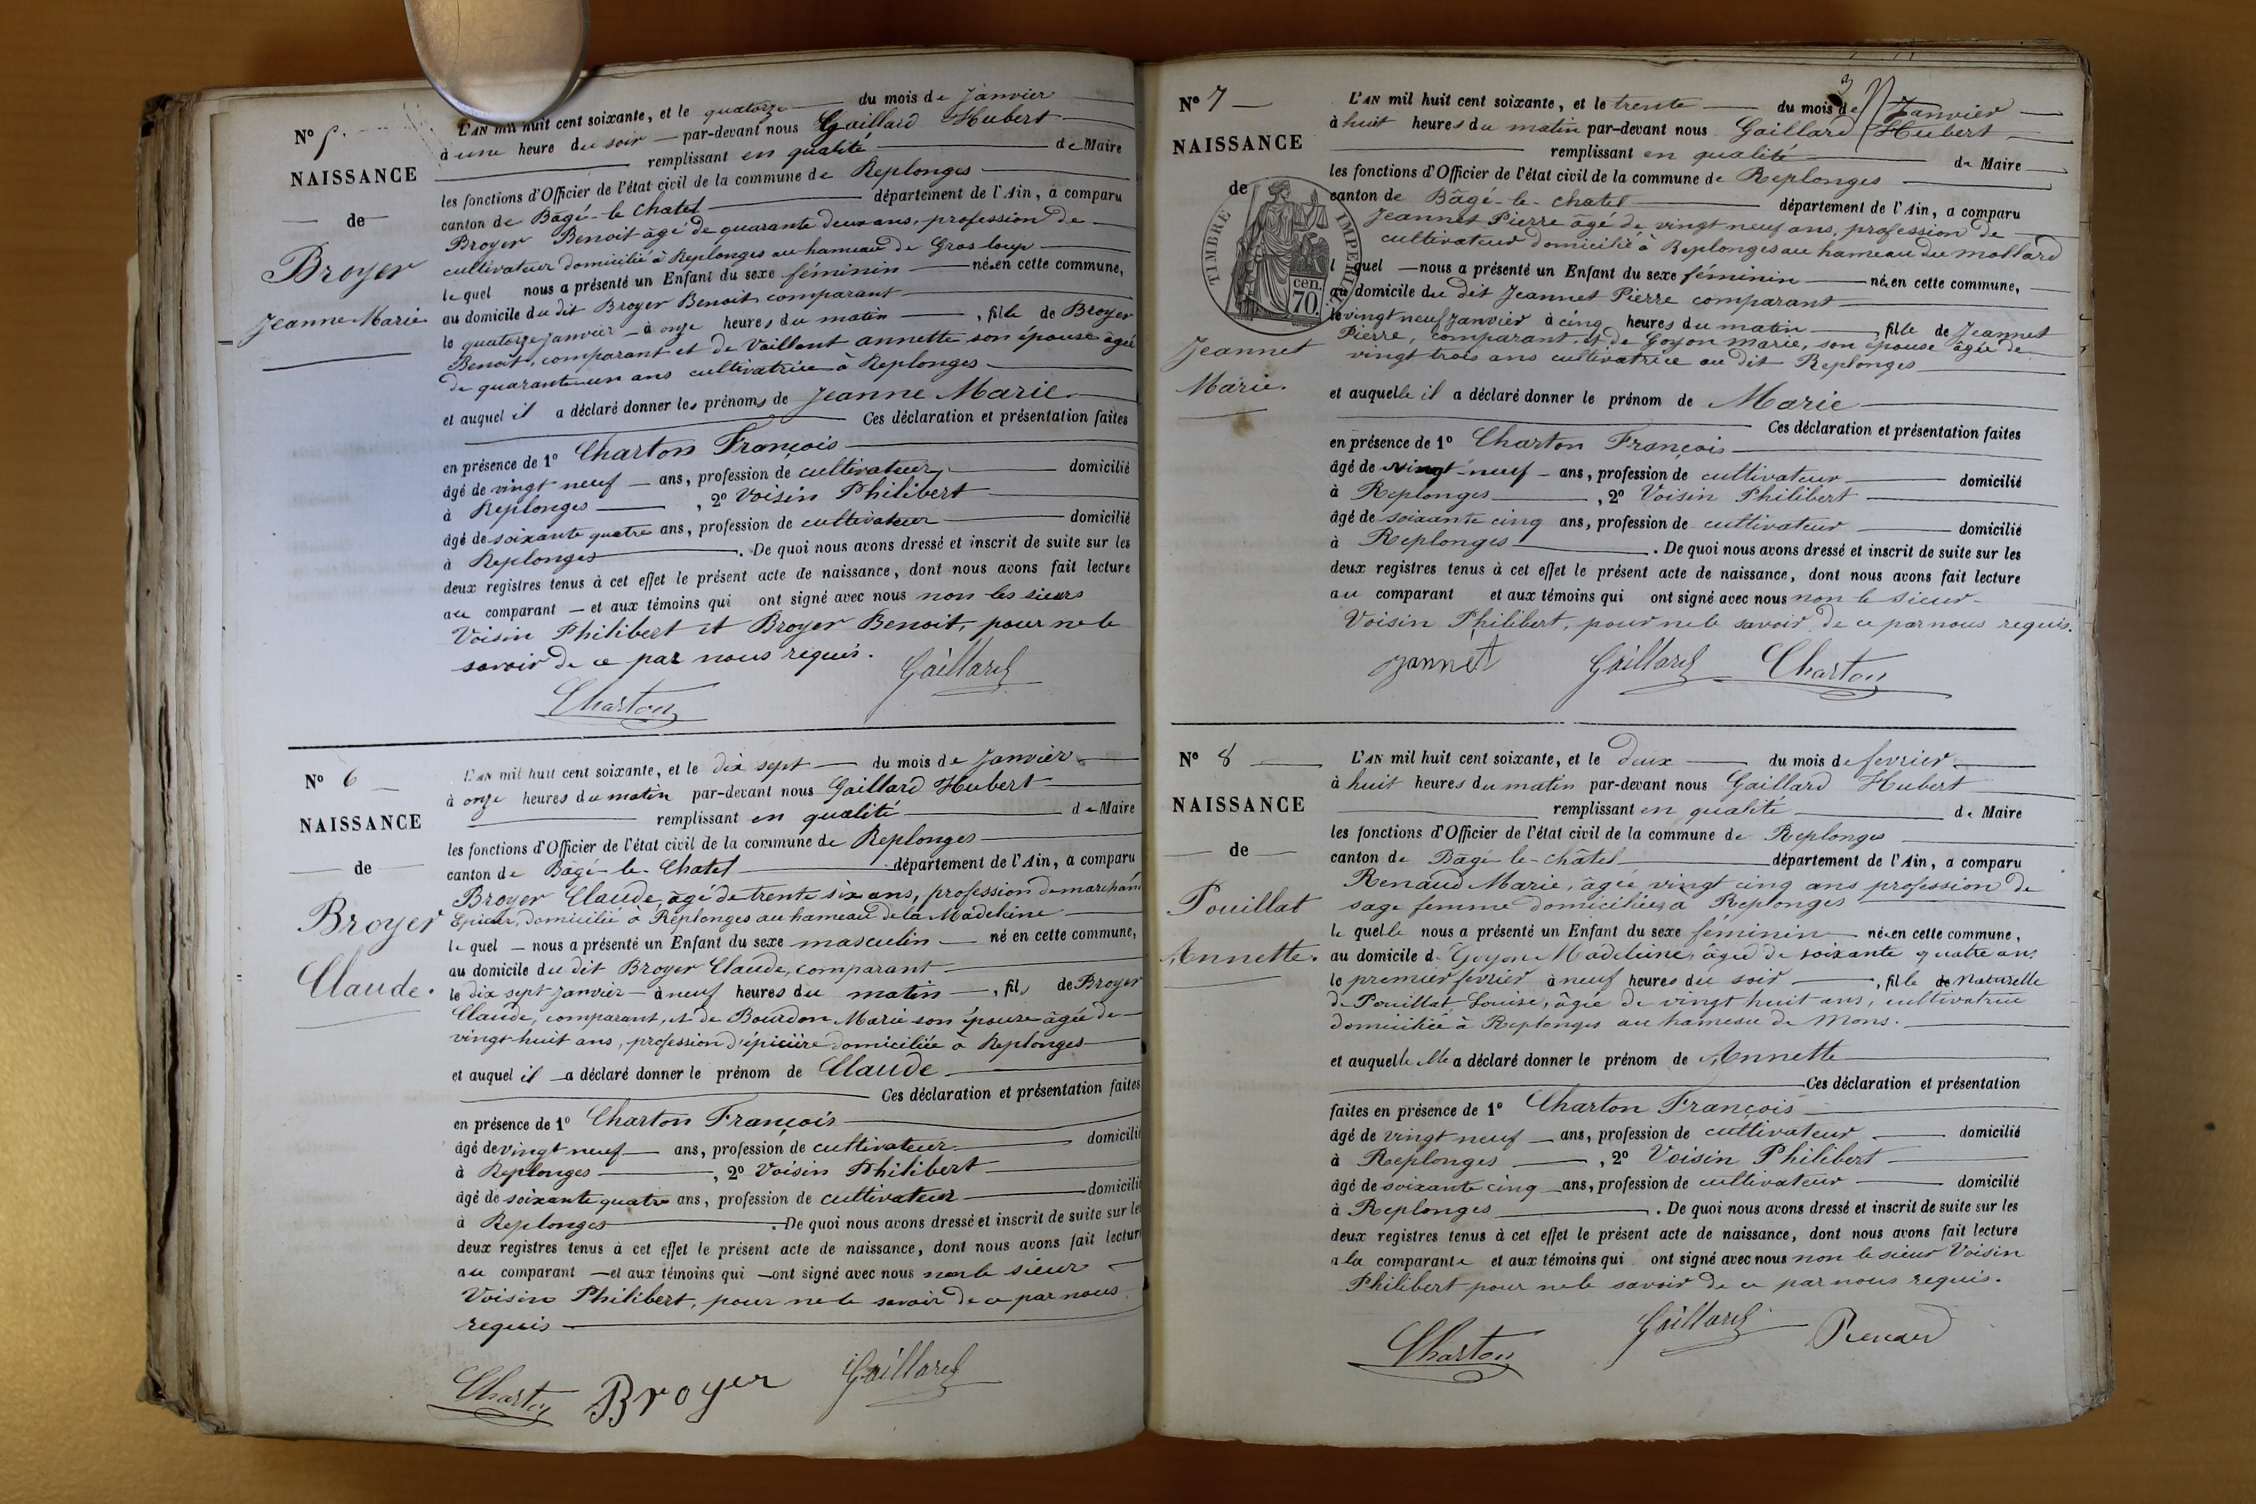 N° 5
NAISSANCE
de
Broyer
Jeanne Marie
L'AN mil huit cent soixante, et le quatorze du mois de Janvier
à une heure du soir par-devant nous Gaillard Hubert
remplissant en qualité de Maire
les fonctions d'Officier de l'état civil de la commune de Replonges
canton de Bâgé-le-chatel département de l'Ain, a comparu
Broyer Benoit âgé de quarante deux ans, profession de
cultivateur domicilié à Replonges au hameau de Gros loup
lequel nous a présenté un Enfant du sexe féminin née en cette commune,
au domicile du dit Broyer Benoit comparant
le quatorze janvier à onze heures du matin, fille de Broyer
Benoit, comparant et de Vaillant annette son épouse âgée
de quarante un ans cultivatrice à Replonges
et auquel il a déclaré donner les prénoms de Jeanne Marie
Ces déclaration et présentation faites
en présence de 1° Charton François
âgé de vingt neuf ans, profession de cultivateur domicilié
à Replonges, 2° Voisin Philibert
âgé de soixante quatre ans, profession de cultivateur domicilié
à Replonges. De quoi nous avons dressé et inscrit de suite sur les
deux registres tenus à cet effet le présent acte de naissance, dont nous avons fait lecture
au comparant et aux témoins qui ont signé avec nous non les sieurs
Voisin Philibert et Broyer Benoit, pour ne le
savoir de ce par nous requis.
Gaillard
Charton
N° 6
NAISSANCE
de
Broyer
Claude.
L'AN mil huit cent soixante, et le dix sept du mois de Janvier
à onze heures du matin par-devant nous Gaillard Hubert
remplissant en qualité de Maire
les fonctions d'Officier de l'état civil de la commune de Replonges
canton de Bâgé-le-Chatel département de l'Ain, a comparu
Broyer Claude, âgé de trente six ans, profession de marchand
Epicier, domicilié à Replonges au hameau de la Madeleine
lequel nous a présenté un Enfant du sexe masculin né en cette commune,
au domicile du dit Broyer Claude, comparant
le dix sept janvier à neuf heures du matin, fils de Broyer
Claude, comparant, et de Bourdon Marie son épouse âgée de
vingt-huit ans, profession d'épicière domiciliée à Replonges
et auquel il a déclaré donner le prénom de Claude
Ces déclaration et présentation faites
en présence de 1° Charton François
âgé de vingt neuf ans, profession de cultivateur domicilié
à Replonges, 2° Voisin Philibert
âgé de soixante quatre ans, profession de cultivateur domicilié
à Replonges. De quoi nous avons dressé et inscrit de suite sur les
deux registres tenus à cet effet le présent acte de naissance, dont nous avons fait lecture
au comparant et aux témoins qui ont signé avec nous non le sieur
Voisin Philibert, pour ne le savoir de ce par nous
requis
Charton Broyer Gaillard
3
N° 7
NAISSANCE
de
TIMBRE IMPERIAL
cen. 70.
Jeannet
Marie.
L'AN mil huit cent soixante, et le trente du mois de Janvier
à huit heures du matin par-devant nous Gaillard Hubert
remplissant en qualité de Maire
les fonctions d'Officier de l'état civil de la commune de Replonges
canton de Bâgé-le-chatel département de l'Ain, a comparu
Jeannet Pierre âgé de vingt neuf ans, profession de
cultivateur domicilié à Replonges au hameau du mollard
lequel nous a présenté un Enfant du sexe féminin née en cette commune,
au domicile du dit Jeannet Pierre comparant
le vingt neuf janvier à cinq heures du matin, fille de Jeannet
Pierre, comparant, et de Goyon marie, son épouse âgée de
vingt trois ans cultivatrice au dit Replonges
et auquelle il a déclaré donner le prénom de Marie
Ces déclaration et présentation faites
en présence de 1° Charton François
âgé de vingt neuf ans, profession de cultivateur domicilié
à Replonges, 2° Voisin Philibert
âgé de soixante cinq ans, profession de cultivateur domicilié
à Replonges. De quoi nous avons dressé et inscrit de suite sur les
deux registres tenus à cet effet le présent acte de naissance, dont nous avons fait lecture
au comparant et aux témoins qui ont signé avec nous non le sieur
Voisin Philibert, pour ne le savoir de ce par nous requis.
Jannet Gaillard Charton
N° 8
NAISSANCE
de
Pouillat
Annette.
L'AN mil huit cent soixante, et le deux du mois de fevrier
à huit heures du matin par-devant nous Gaillard Hubert
remplissant en qualité de Maire
les fonctions d'Officier de l'état civil de la commune de Replonges
canton de Bâgé-le-châtel département de l'Ain, a comparu
Renaud Marie, âgée vingt cinq ans profession de
sage femme domiciliée à Replonges
lequelle nous a présenté un Enfant du sexe féminin née en cette commune,
au domicile de Goyon Madeleine, âgée de soixante quatre ans
le premier fevrier à neuf heures du soir, fille de Naturelle
de Pouillat Louise, âgée de vingt huit ans, cultivatrice
domiciliée à Replonges au hameau de Mons.
et auquelle elle a déclaré donner le prénom de Annette
Ces déclaration et présentation
faites en présence de 1° Charton François
âgé de vingt neuf ans, profession de cultivateur domicilié
à Replonges, 2° Voisin Philibert
âgé de soixante cinq ans, profession de cultivateur domicilié
à Replonges. De quoi nous avons dressé et inscrit de suite sur les
deux registres tenus à cet effet le présent acte de naissance, dont nous avons fait lecture
a la comparante et aux témoins qui ont signé avec nous non le sieur Voisin
Philibert pour ne le savoir de ce par nous requis.
Charton Gaillard Renaud